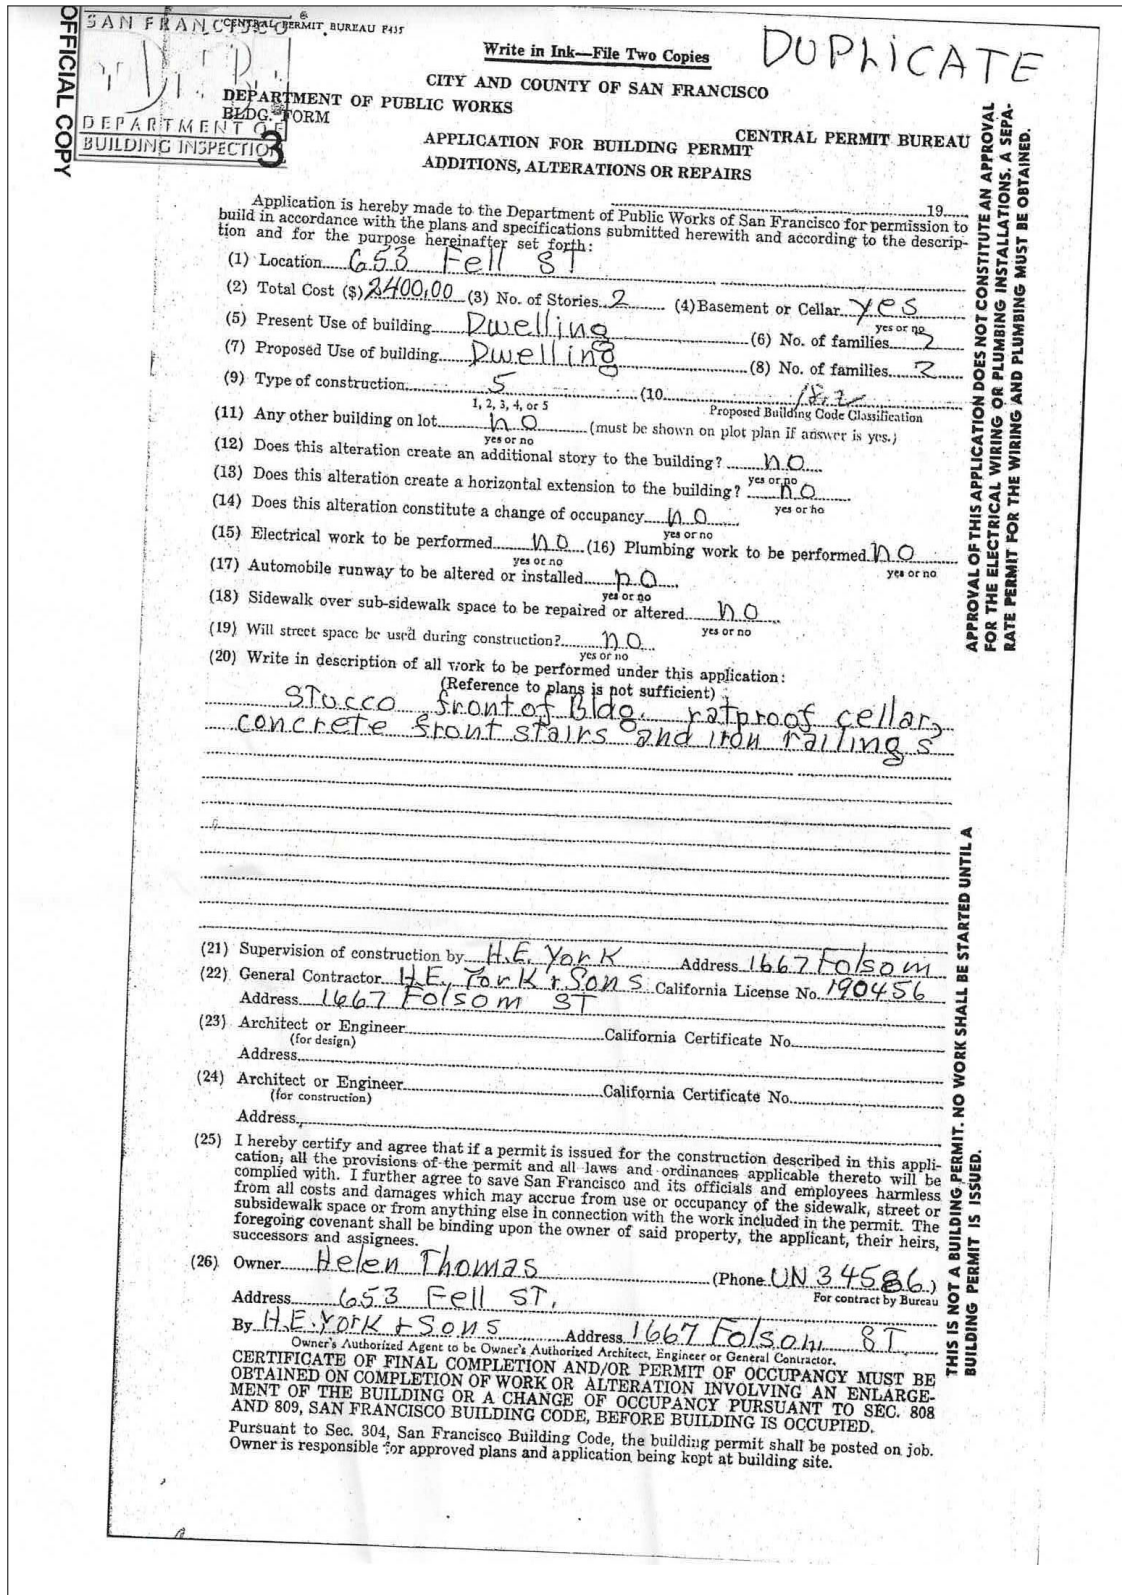 OFFICIAL COPY
SAN FRANCISCO
CENTRAL PERMIT BUREAU F435
DEPARTMENT OF
BUILDING INSPECTION
Write in Ink—File Two Copies
DUPLICATE
CITY AND COUNTY OF SAN FRANCISCO
DEPARTMENT OF PUBLIC WORKS
BLDG. FORM
3
CENTRAL PERMIT BUREAU
APPLICATION FOR BUILDING PERMIT
ADDITIONS, ALTERATIONS OR REPAIRS
19
Application is hereby made to the Department of Public Works of San Francisco for permission to
build in accordance with the plans and specifications submitted herewith and according to the descrip-
tion and for the purpose hereinafter set forth:
(1) Location 653 Fell ST
(2) Total Cost ($) 2400,00 (3) No. of Stories 2 (4) Basement or Cellar yes
yes or no
(5) Present Use of building Dwelling (6) No. of families 2
(7) Proposed Use of building Dwelling (8) No. of families 2
(9) Type of construction 5 (10
1, 2, 3, 4, or 5 Proposed Building Code Classification
(11) Any other building on lot no (must be shown on plot plan if answer is yes.)
yes or no
(12) Does this alteration create an additional story to the building? no
yes or no
(13) Does this alteration create a horizontal extension to the building? no
yes or no
(14) Does this alteration constitute a change of occupancy no
yes or no
(15) Electrical work to be performed no (16) Plumbing work to be performed no
yes or no yes or no
(17) Automobile runway to be altered or installed no
yes or no
(18) Sidewalk over sub-sidewalk space to be repaired or altered no
yes or no
(19) Will street space be used during construction? no
yes or no
(20) Write in description of all work to be performed under this application:
(Reference to plans is not sufficient)
Stucco front of Bldg, ratproof cellar,
concrete front stairs and iron railings
(21) Supervision of construction by H.E. York Address 1667 Folsom
(22) General Contractor H.E. York + Sons California License No. 190456
Address 1667 Folsom ST
(23) Architect or Engineer California Certificate No.
(for design)
Address
(24) Architect or Engineer California Certificate No.
(for construction)
Address
(25) I hereby certify and agree that if a permit is issued for the construction described in this appli-
cation, all the provisions of the permit and all laws and ordinances applicable thereto will be
complied with. I further agree to save San Francisco and its officials and employees harmless
from all costs and damages which may accrue from use or occupancy of the sidewalk, street or
subsidewalk space or from anything else in connection with the work included in the permit. The
foregoing covenant shall be binding upon the owner of said property, the applicant, their heirs,
successors and assignees.
(26) Owner Helen Thomas (Phone UN 34586)
For contract by Bureau
Address 653 Fell ST.
By H.E. York + Sons Address 1667 Folsom ST
Owner's Authorized Agent to be Owner's Authorized Architect, Engineer or General Contractor.
CERTIFICATE OF FINAL COMPLETION AND/OR PERMIT OF OCCUPANCY MUST BE
OBTAINED ON COMPLETION OF WORK OR ALTERATION INVOLVING AN ENLARGE-
MENT OF THE BUILDING OR A CHANGE OF OCCUPANCY PURSUANT TO SEC. 808
AND 809, SAN FRANCISCO BUILDING CODE, BEFORE BUILDING IS OCCUPIED.
Pursuant to Sec. 304, San Francisco Building Code, the building permit shall be posted on job.
Owner is responsible for approved plans and application being kept at building site.
APPROVAL OF THIS APPLICATION DOES NOT CONSTITUTE AN APPROVAL
FOR THE ELECTRICAL WIRING OR PLUMBING INSTALLATIONS. A SEPA-
RATE PERMIT FOR THE WIRING AND PLUMBING MUST BE OBTAINED.
THIS IS NOT A BUILDING PERMIT. NO WORK SHALL BE STARTED UNTIL A
BUILDING PERMIT IS ISSUED.